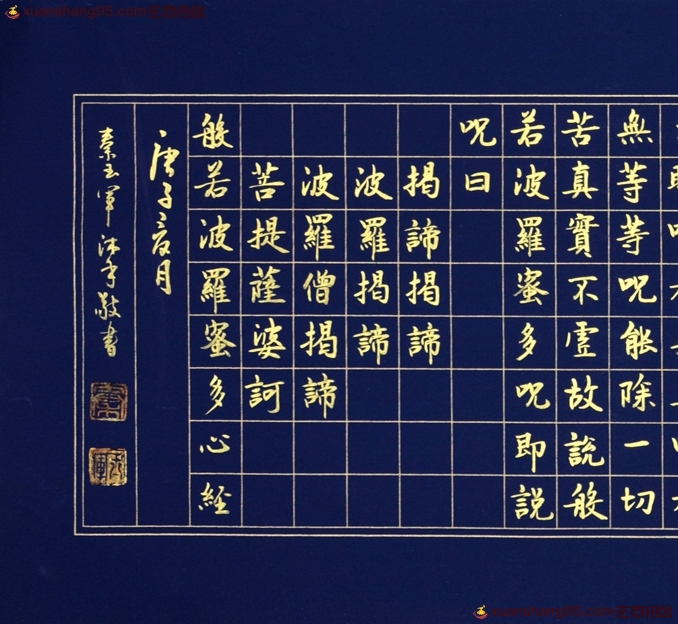 無等等呪能除一切
苦真實不虛故說般
若波羅蜜多呪即說
呪曰
揭諦揭諦
波羅揭諦
波羅僧揭諦
菩提薩婆訶
般若波羅蜜多心経
庚子夏月
秦玉軍沐手敬書